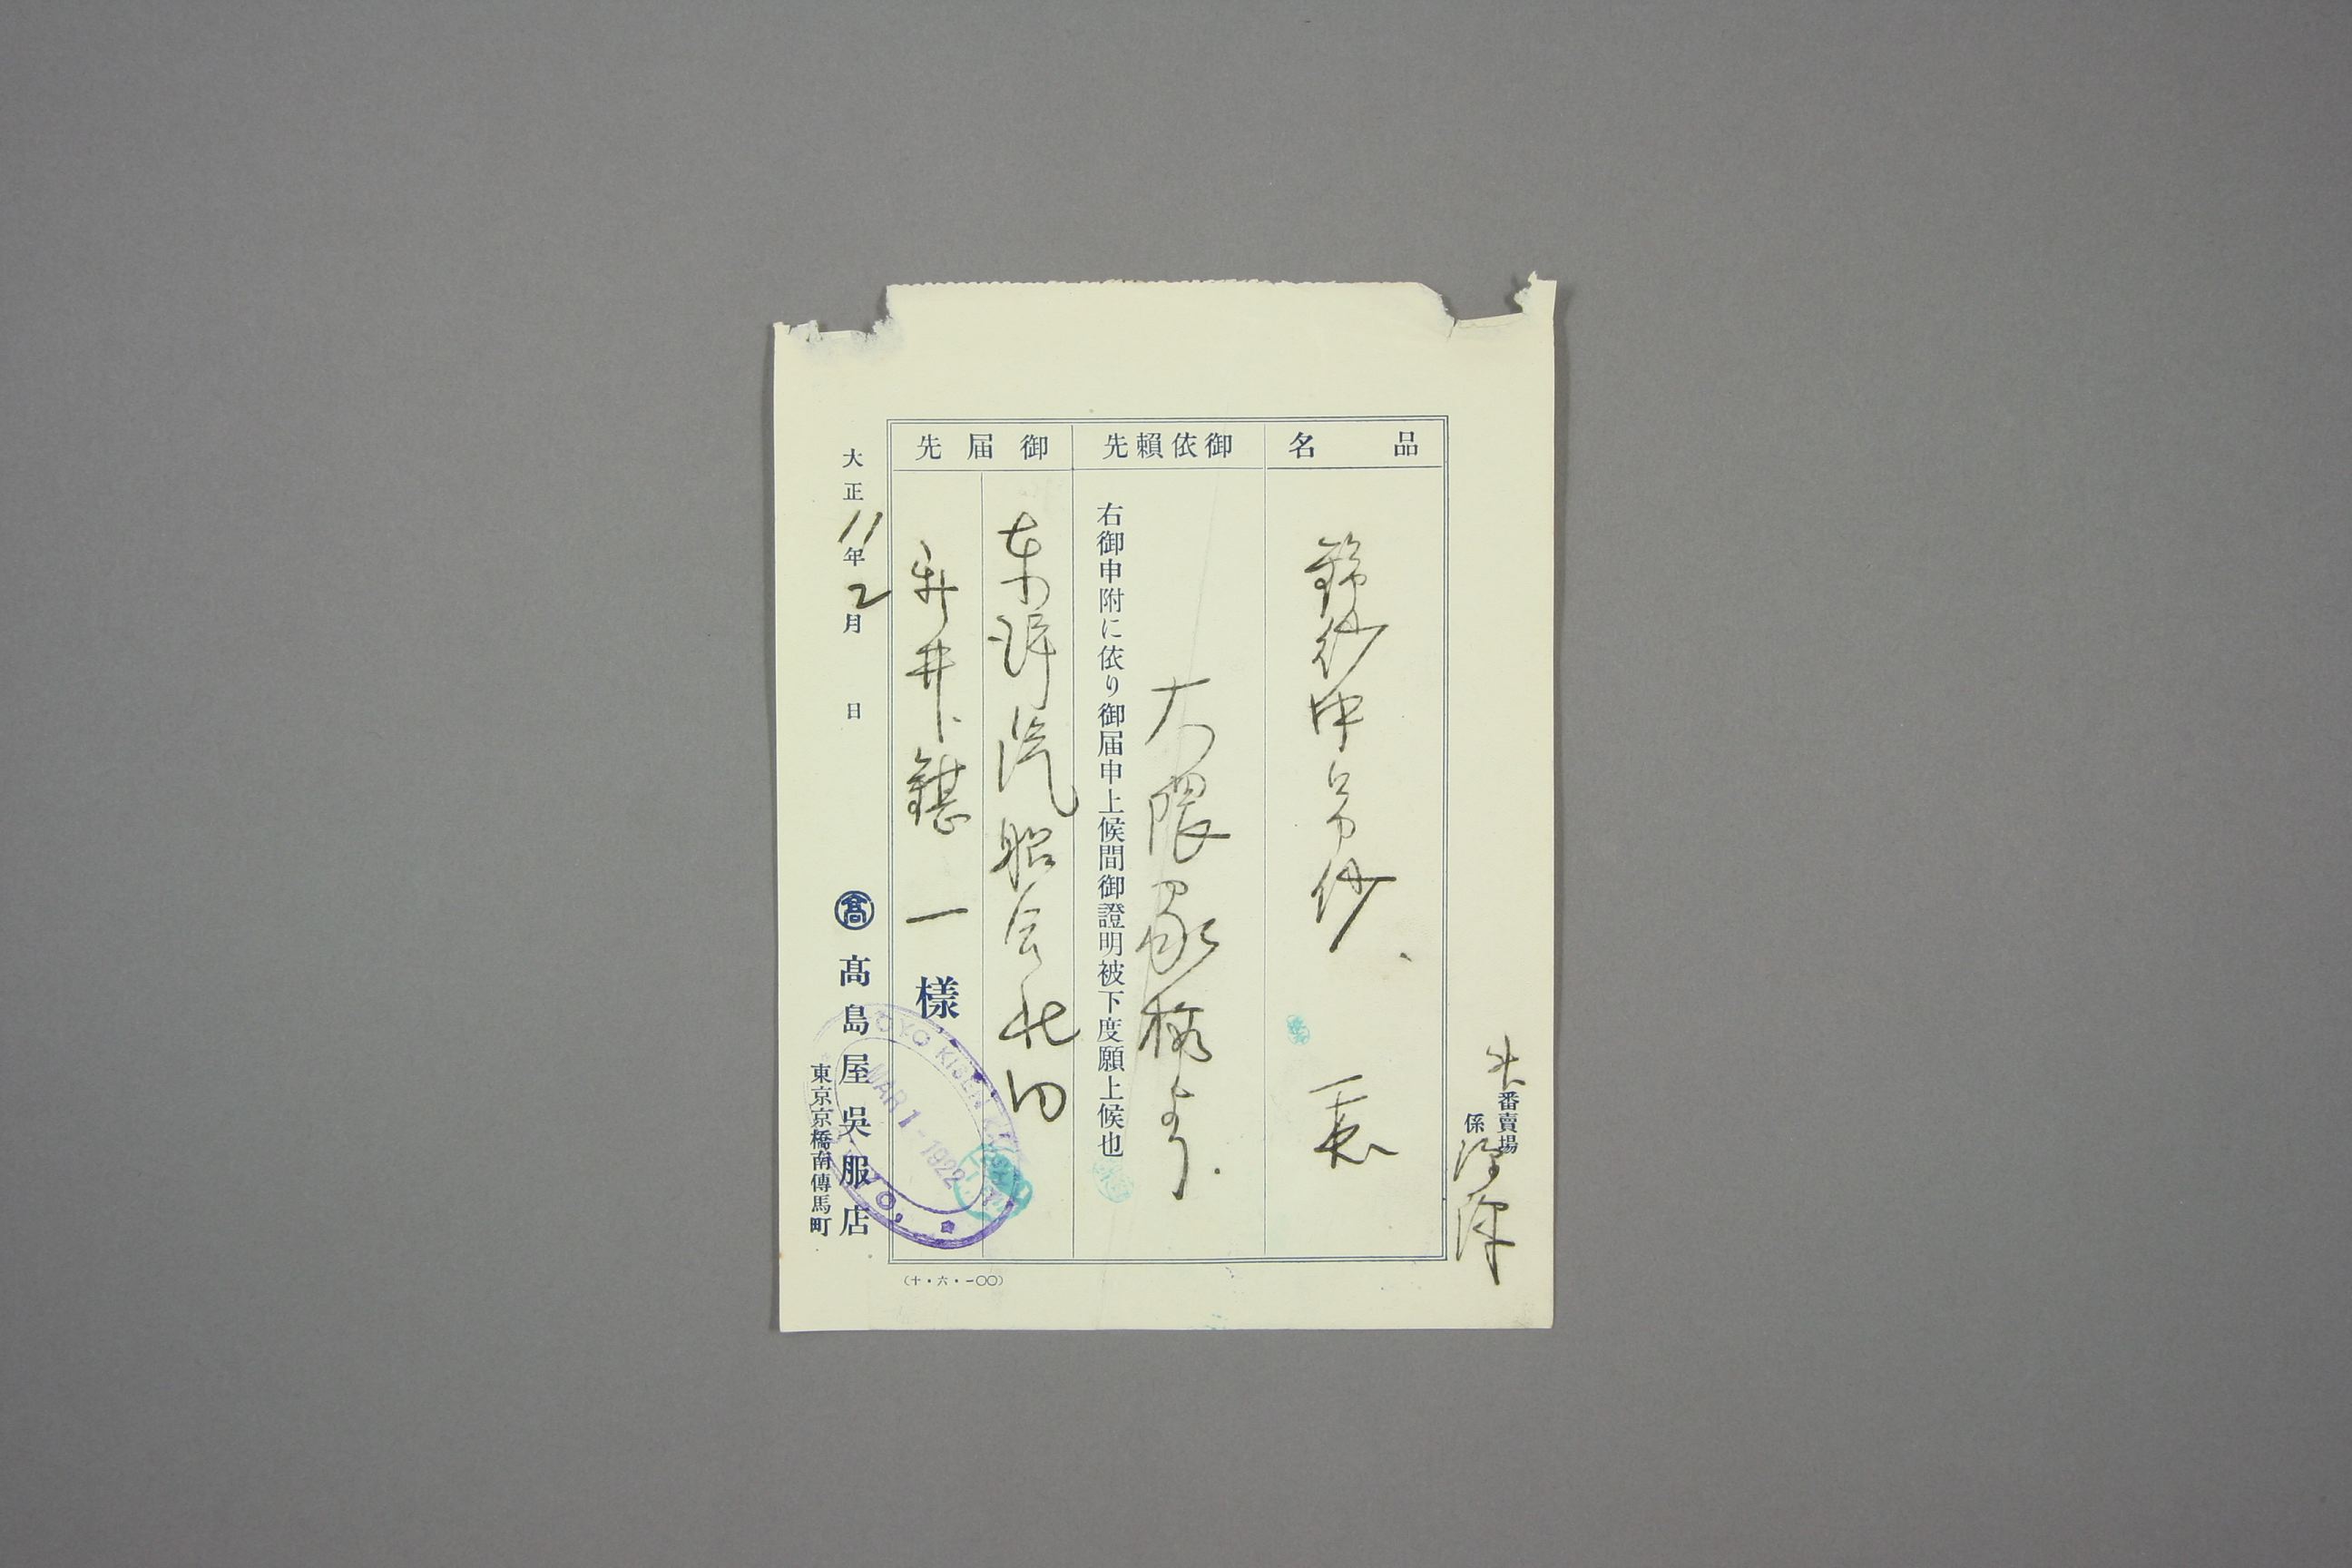 番賣場
係
品名
錦紗中幅帛紗、
一裹
御依頼先
大隈家様より.
右御申附に依り御届申上候間御證明被下度願上候也
御届先
東洋汽船会社内
新井鍖一様
大正11年2月 日
髙 髙島屋呉服店
東京京橋南傳馬町
(十・六・一〇〇)
TOYO KISEN
MAR 1 - 1922